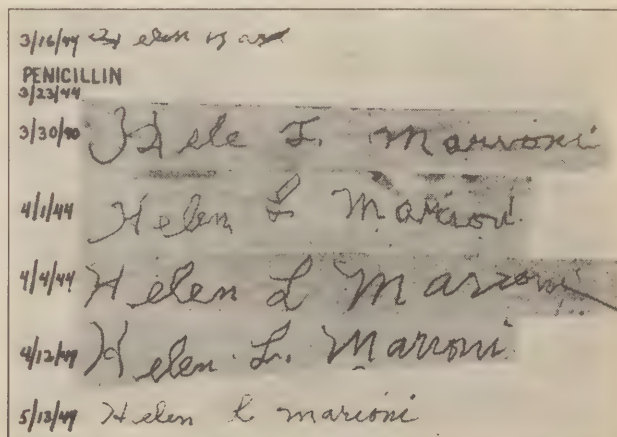 3/16/44 Helen
PENICILLIN
3/23/44
3/30/40 Hele L. Marroni
4/1/44 Helen L Marioni
4/4/44 Helen L Marioni
4/12/49 Helen L. Marroni
5/13/49 Helen L marioni